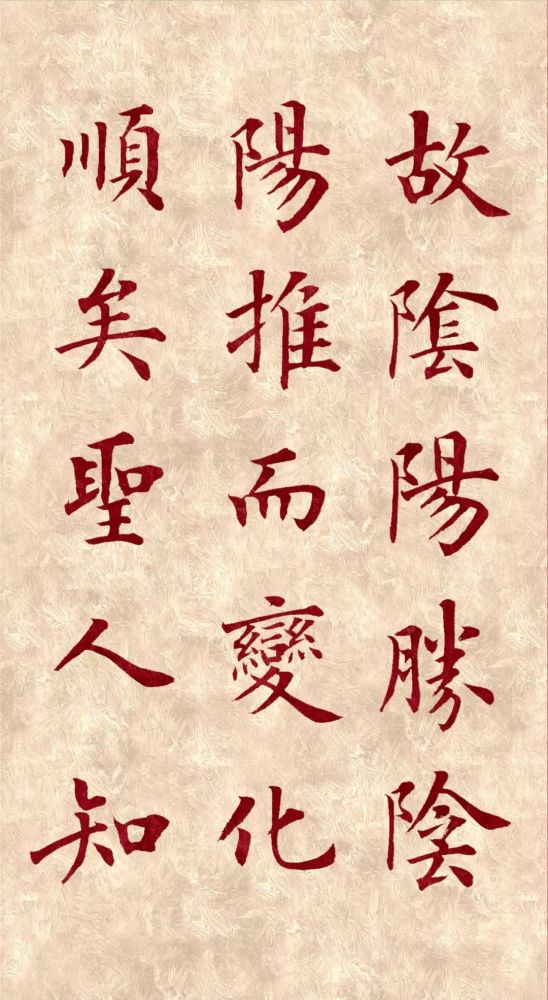 故陰陽勝陰
陽推而變化
順矣聖人知